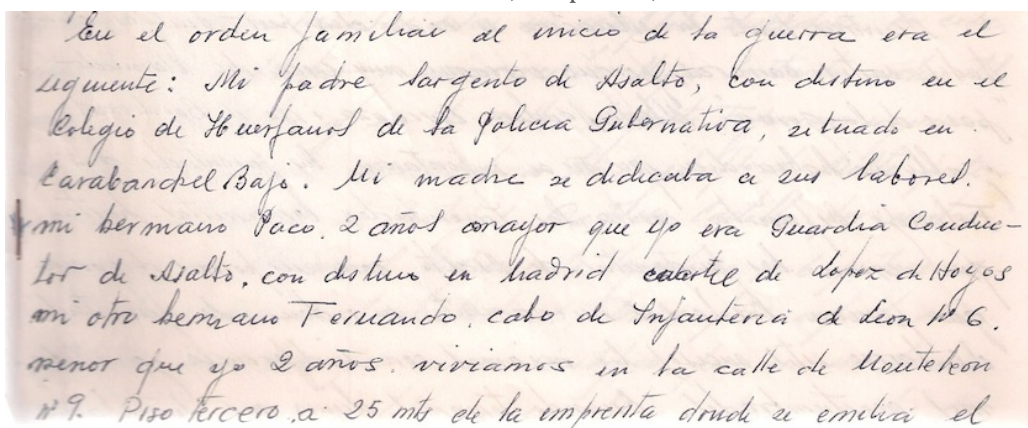 En el orden familiar al inicio de la guerra era el
siguiente: Mi padre Sargento de Asalto, con destino en el
Colegio de Huerfanos de la Policia Gubernativa, situado en
Carabanchel Bajo. Mi madre se dedicaba a sus labores.
mi hermano Paco, 2 años mayor que yo era Guardia Conduc-
tor de Asalto, con destino en Madrid cuartel de Lopez de Hoyos
mi otro hermano Fernando, cabo de Infanteria de Leon Nº 6.
menor que yo 2 años. viviamos en la calle de Monteleon
nº 9. Piso tercero, a 25 mts de la imprenta donde se emitia el